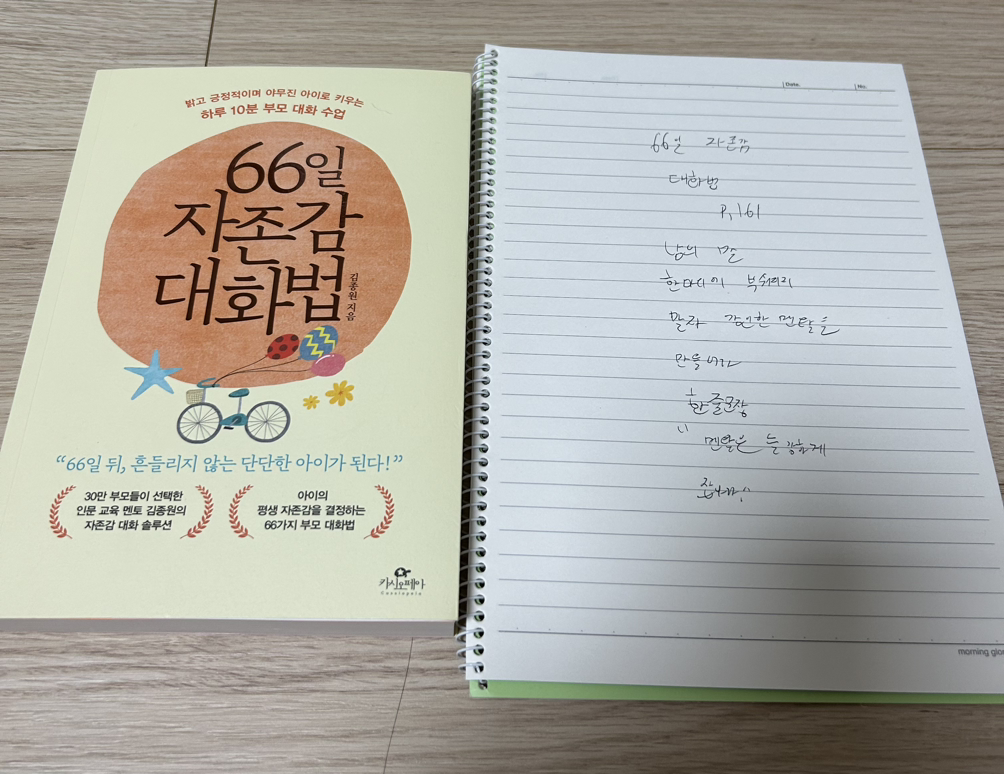 밝고 긍정적이며 야무진 아이로 키우는
하루 10분 부모 대화 수업
66일
자존감
대화법
김종원 지음
“66일 뒤, 흔들리지 않는 단단한 아이가 된다!”
30만 부모들이 선택한
인문 교육 멘토 김종원의
자존감 대화 솔루션
아이의
평생 자존감을 결정하는
66가지 부모 대화법
카시오페아
Cassiopeia
Date.
No.
66일 자존감
대화법
P, 161
남의 말
한마디에
말자 강인한 멘탈을
한줄문장
" 멘탈은 늘 강하게
morning glor